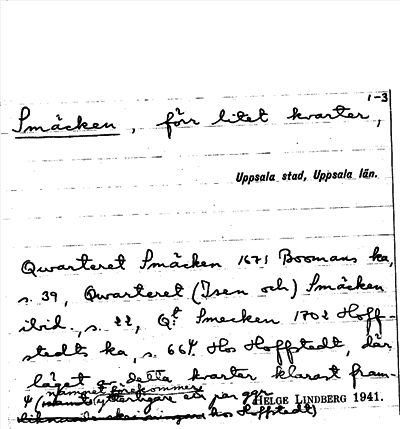 1-3
Smäcken, förr litet kvarter,
Uppsala stad, Uppsala län.
Qwarteret Smäcken 1671 Boomans ka,
s. 39, Qwarteret (Isen och) Smäcken
ibid., s. 22, Qt Smecken 1702 Hoff-
stedts ka, s. 66 4. Hos Hoffstedt, där
läget av detta kvarter klarast fram-
4 (namnet förekommer
ytterligare ett par ggr
HELGE LINDBERG 1941.
hos Hoffstedt)